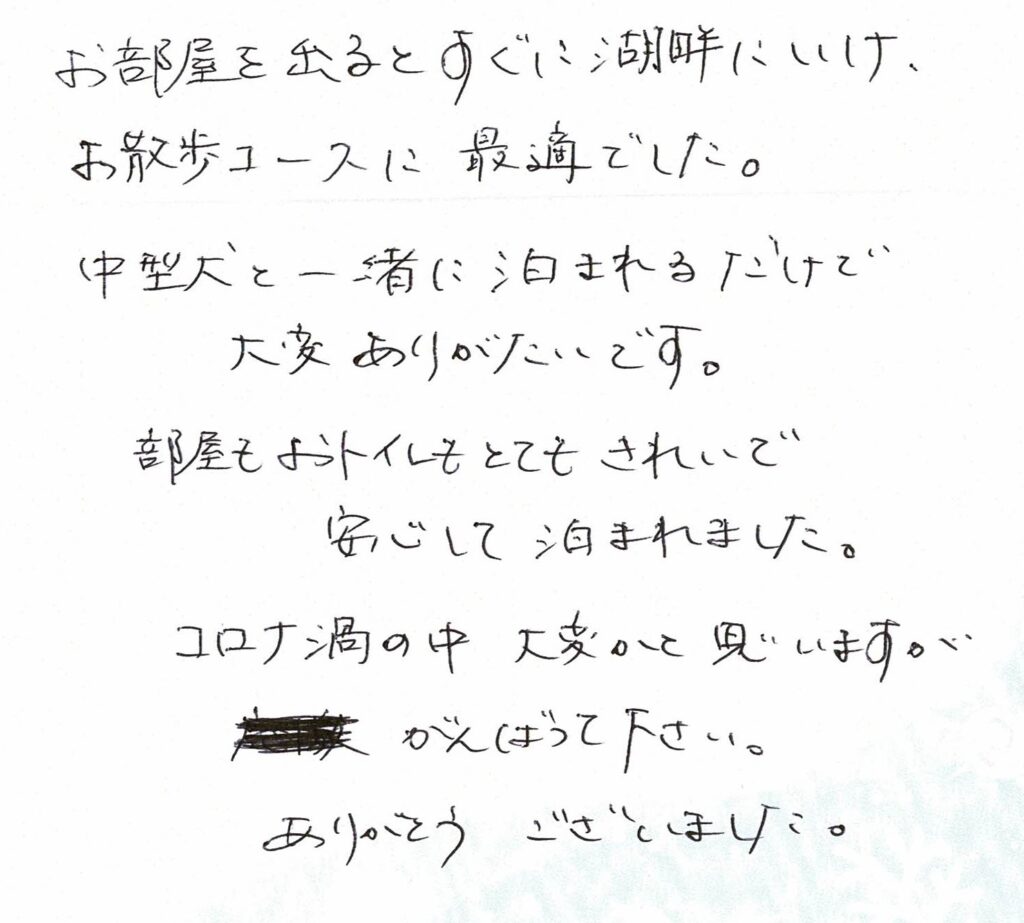 お部屋を出るとすぐに湖畔にいけ、
お散歩コースに最適でした。
中型犬と一緒に泊まれるだけで
大変ありがたいです。
部屋もおトイレもとてもきれいで
安心して泊まれました。
コロナ渦の中 大変かと思いますが
がんばって下さい。
ありがとうございました。